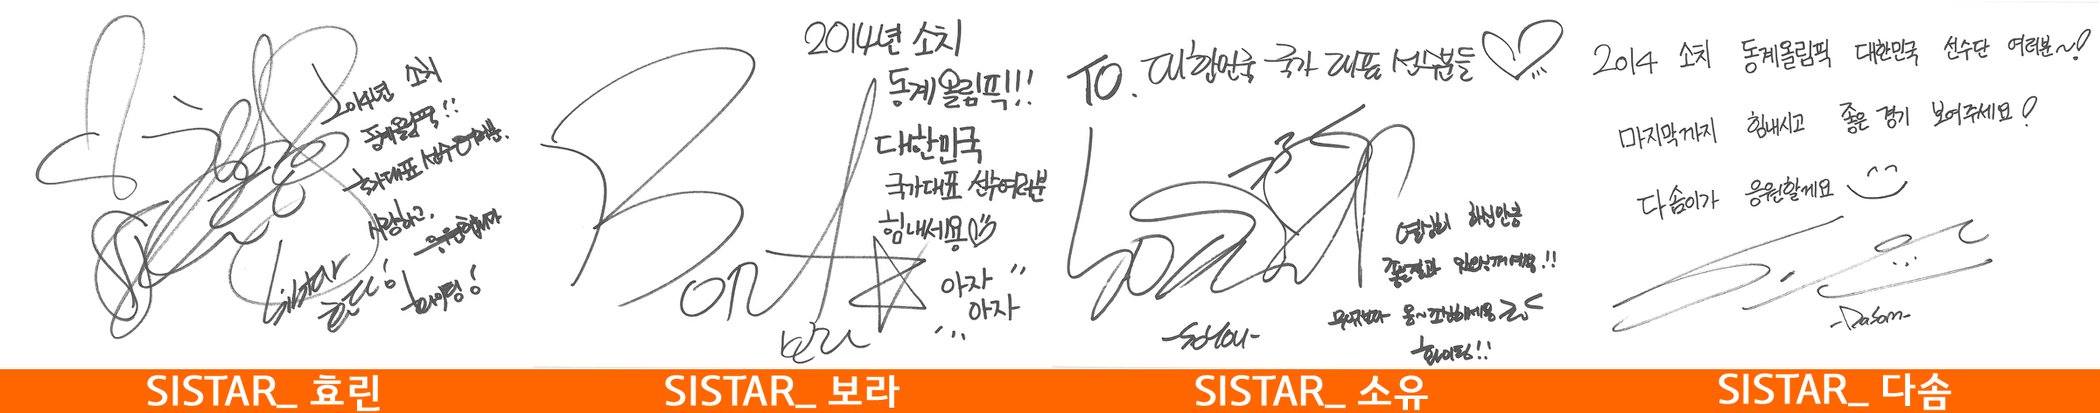 2014년 소치
동계올림픽!!
국가대표 선수여러분.
사랑하고.
응원합니다
Sistar
효린!
화이팅!
SISTAR_ 효린
2014년 소치
동계올림픽!!!
대한민국
국가대표 선수여러분
힘내세용
아자
아자
보라
SISTAR_ 보라
TO. 대한민국 국가대표 선수분들
열심히 하신만큼
좋은결과 있으실꺼에요.!!
화이팅!!
-SoYou-
SISTAR_ 소유
2014 소치 동계올림픽 대한민국 선수단 여러분~!
마지막까지 힘내시고 좋은 경기 보여주세요!
다솜이가 응원할게요
-Dasom-
SISTAR_ 다솜